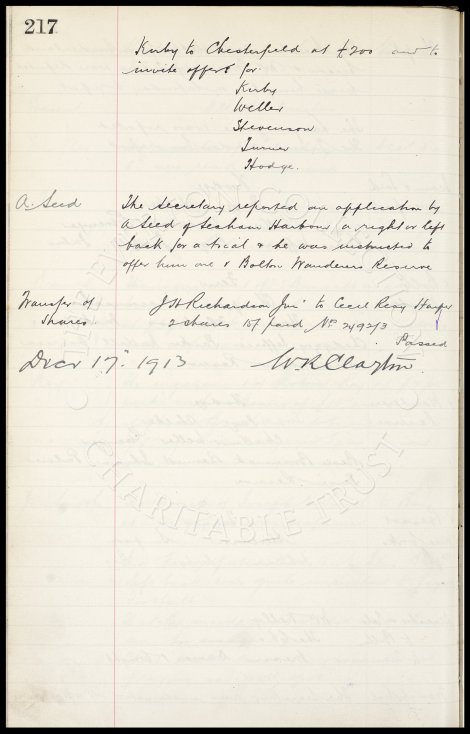 217
Kirby to Chesterfield at £200 and to
invite offers for
Kirby
Weller
Stevenson
Turner
Hodge.
A. Seed
The Secretary reported an application by
A Seed of Seaham Harbour, a right or left
back for a trial & he was instructed to
offer him one v Bolton Wanderers Reserve
Transfer of
shares
J H Richardson Junr to Cecil Reay Harper
2 shares 10/ paid Nos 2492/3
Passed
Decr 17th 1913
W R Clayton.
CHARITABLE TRUST